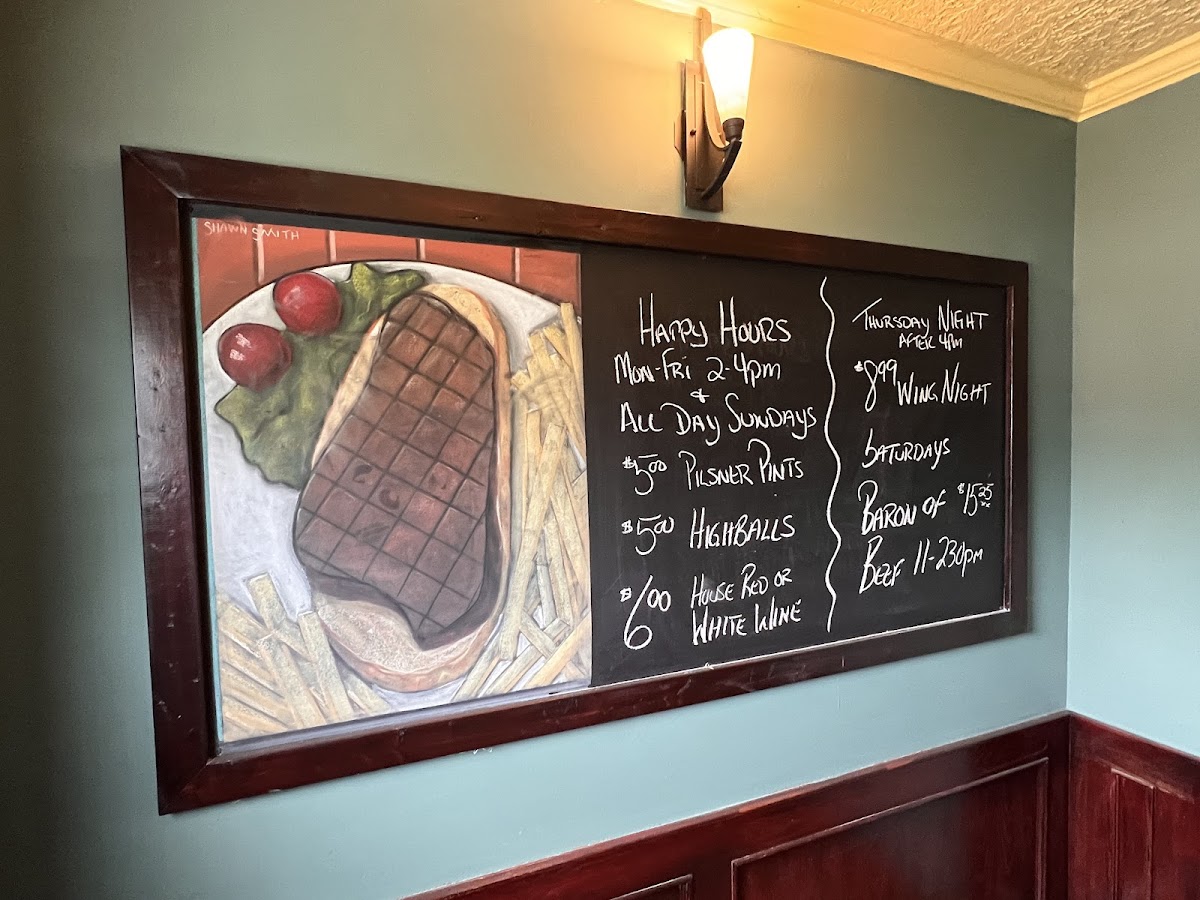 SHAWN SMITH
HAPPY HOURS
MON-FRI 2-4PM
&
ALL DAY SUNDAYS
$5.00 PILSNER PINTS
$5.00 HIGHBALLS
$6.00 HOUSE RED OR
WHITE WINE
THURSDAY NIGHT
AFTER 4PM
$8.99 WING NIGHT
SATURDAYS
BARON OF $15.25
BEEF 11-230PM